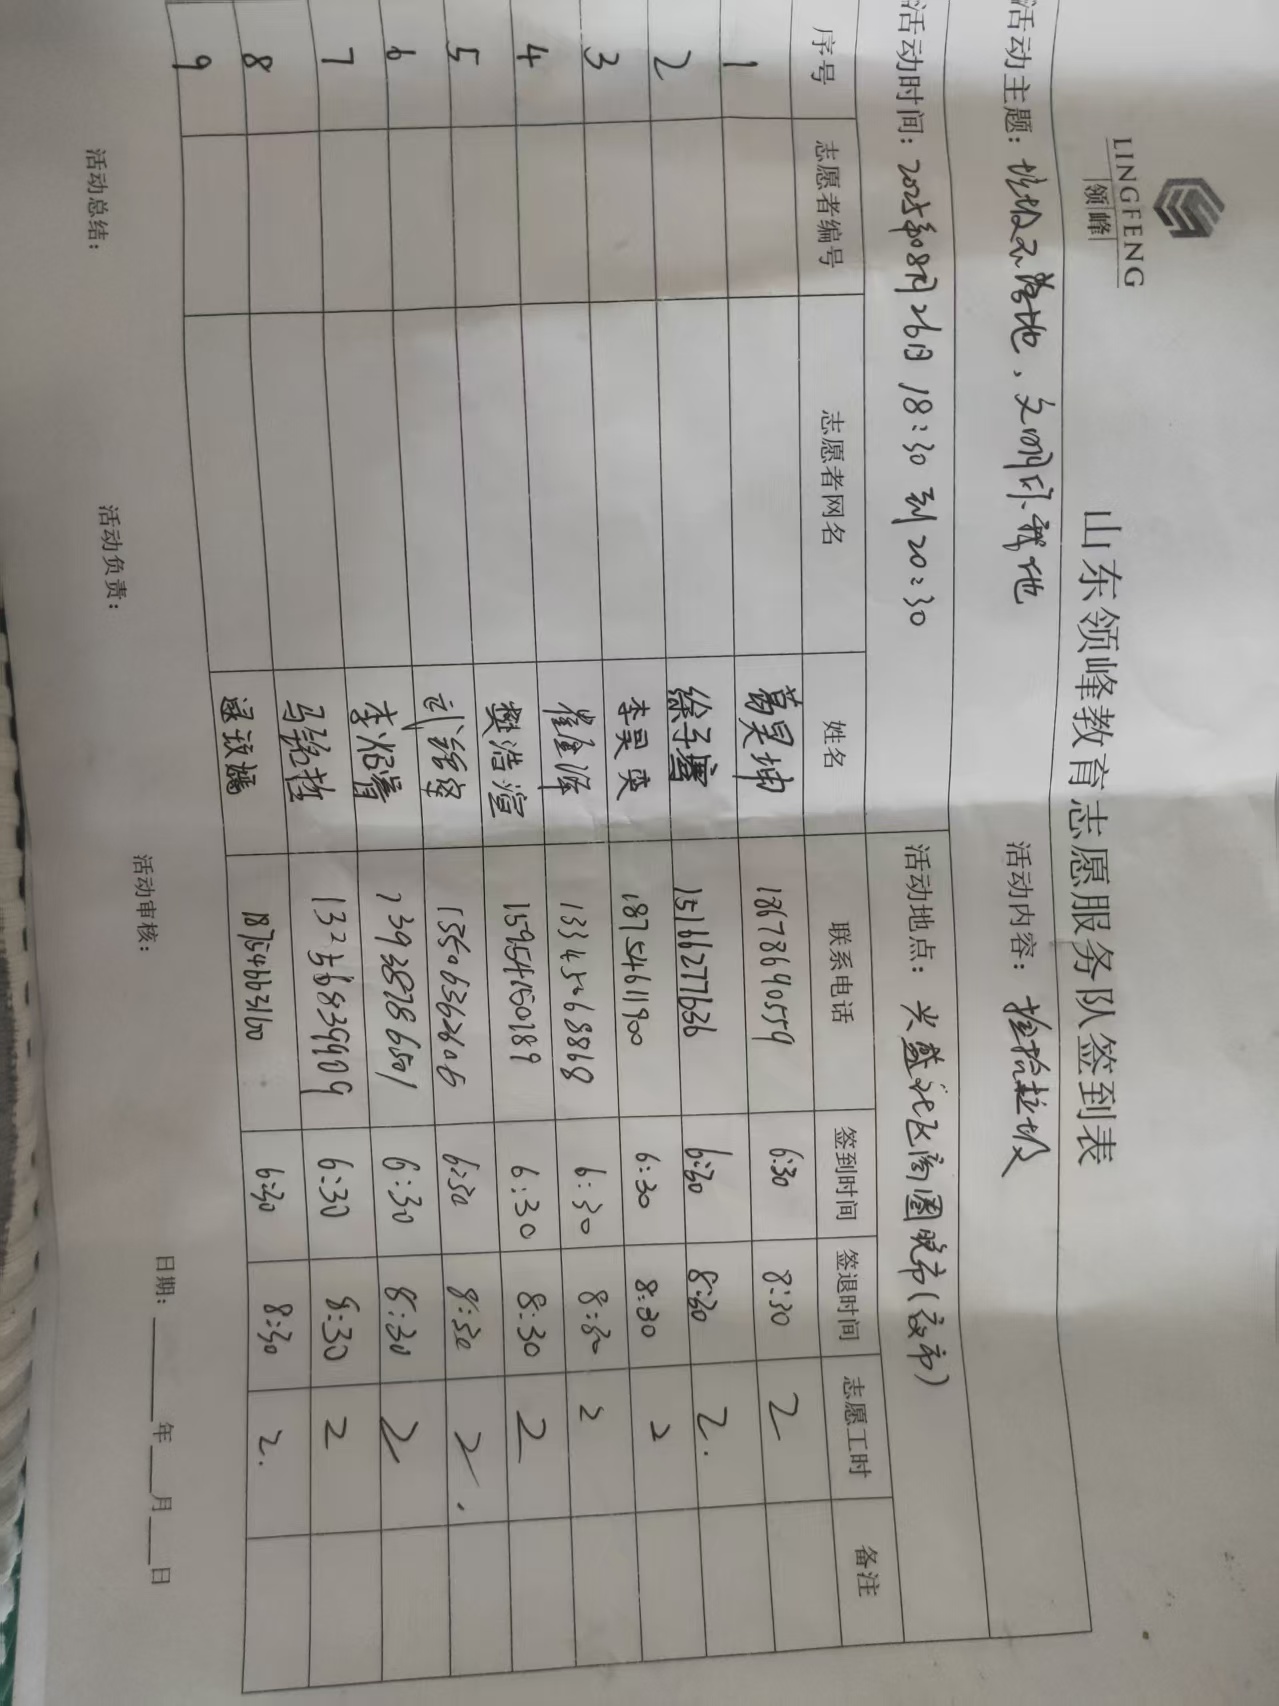 LINGFENG
领峰
山东领峰教育志愿服务队签到表
活动主题：垃圾不落地，文明 活动内容：捡拾垃圾
活动时间：2025年8月26日 18:30 到 20:30 活动地点：兴盛社区商圈晚市(夜市)
序号 志愿者编号 志愿者网名 姓名 联系电话 签到时间 签退时间 志愿工时 备注
1 葛昊坤 6:30 8:30 2
2 徐子涵 15166277636 6:30 8:30 2.
3 李昊奕 18754611900 6:30 8:30 2
4 崔金泽 13345068868 6:30 8:30 2
5 樊浩渲 6:30 8:30 2
6 13506362605 6:30 8:30 2.
7 6:30 8:30 2
8 马铭哲 13256839909 6:30 8:30 2
9 18754663160 6:30 8:30 2.
活动总结： 活动负责： 活动审核： 日期：____年__月__日